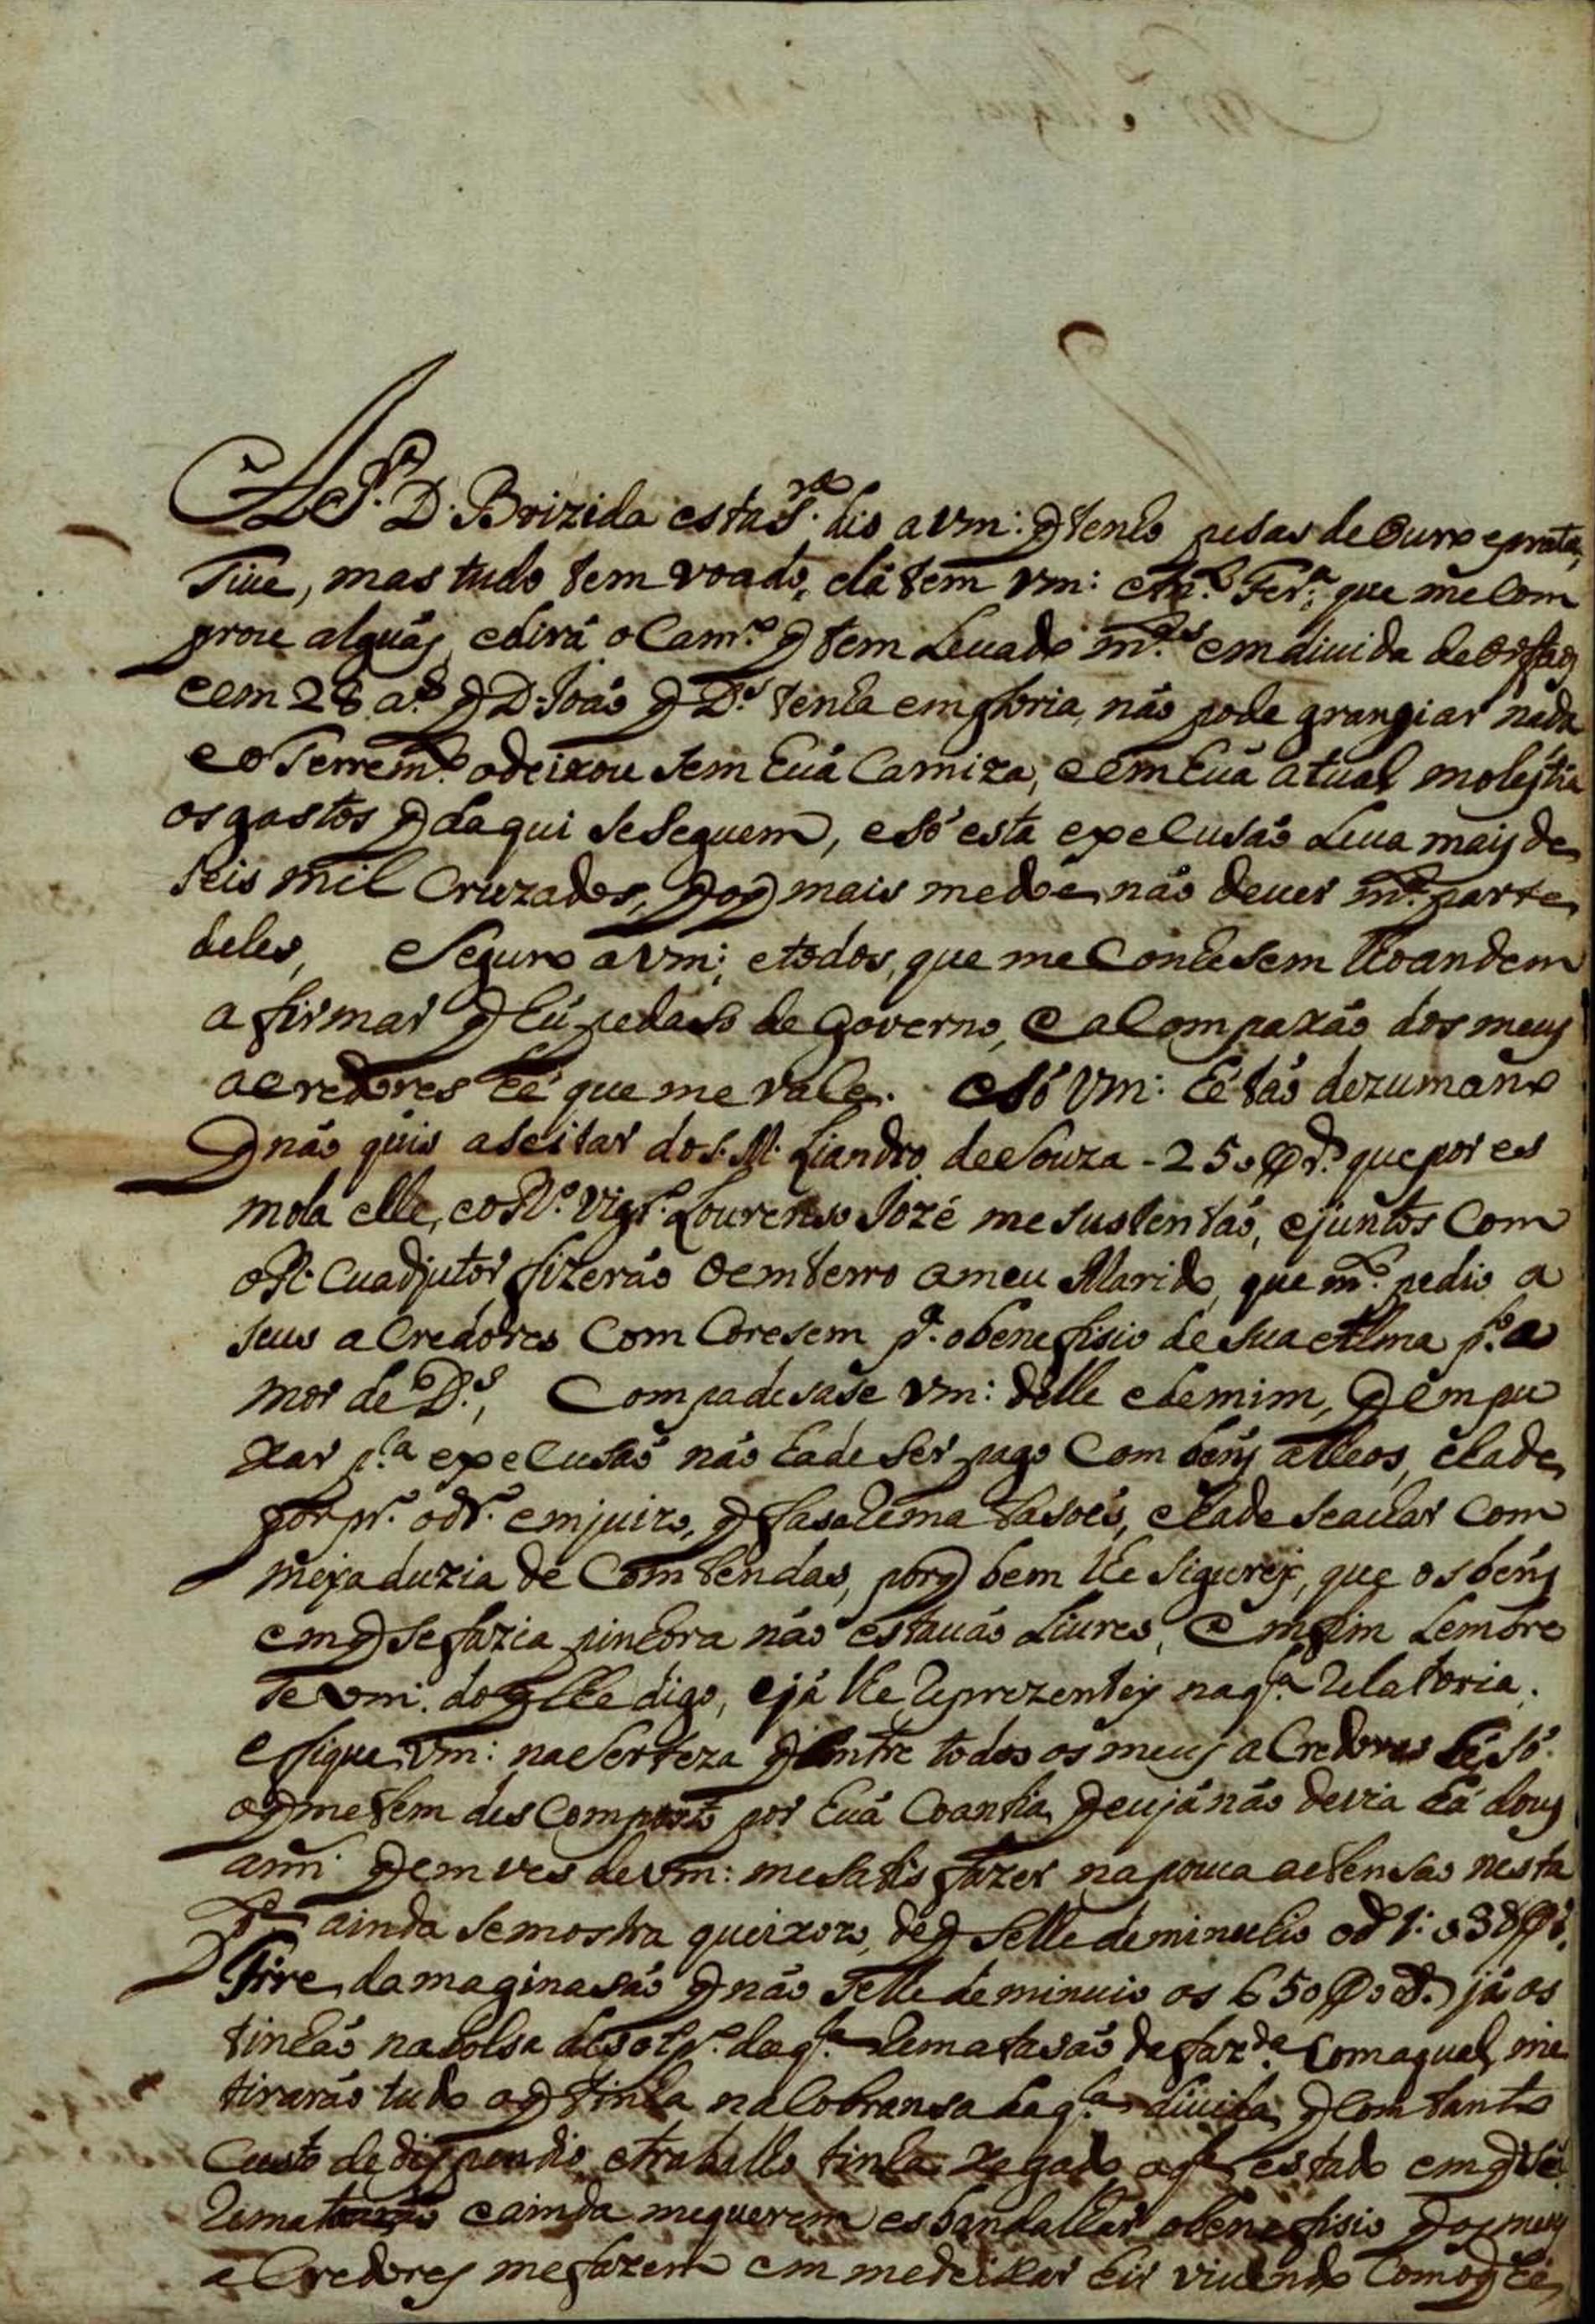 A Sr.ª D. Brizida esta Sr.ª dis a Vm: q̃ tenho pesas de Ouro e prata,
Tiue, mas tudo tem voado, e la tem Vm: Fer.ª, que me Com
prou alguãs, e dirá o Cam.º q̃ tem Leuado m.tas em diuida de orfaõs
e em 28 a.s q̃ D. Joaõ q̃ D.s tenha em gloria, naõ pode grangiar nada
e o Terrem.to o deixou sem huã Camiza, e em huã atual molestia
os gastos q̃ daqui se seguem, e só esta expelusaõ Leua mais de
seis mil Cruzados, q̃ o q̃ mais me doe naõ deuer m.ta parte
deles, e Seguro a Vm: e todos, que me Conhesem lhe andem
a firmar q̃ hú pedaso de Governo, e a Compaxaõ dos meus
acredores hé que me vale. e Só Vm: hé taõ dezumano
q̃ naõ quis aseitar do S. M. Liandro de Souza - 250 que por es
mola elle, e o R.º Vigr.º Lourenso Jozé me sustentaõ, e juntos Com
o R. Cuadjutor fizeraõ o emterro a meu Marido, que m.to pedio a
seus aCredores Com Coresem p.ª o benefisio de sua Alma p.lo a
mor de D.s, Compadesase Vm: delle e de mim, q̃ em pu
xar p.la expelusaõ naõ hade ser pago Com bens alheos, e hade
por pr.º o dr.º em juizo, q̃ fasa Rematasoẽs, e hade se achar Com
meya duzia de Comtendas, porq̃ bem lhe sigurey, que os bens
em q̃ se fazia pinhora naõ estauaõ Liures, e emfim Lembre
se Vm: do q̃ lhe digo, e já lhe Reprezentey naq.la Relatoria.
e fique Vm: na Serteza q̃ entre todos os meus aCredores hé só
o q̃ me tem des Composto por huã Coantia, q̃ eu já naõ devia há dous
ann q̃ em ves de Vm: me satisfazer na pouca atensaõ nesta
p.te ainda se mostra queixozo, de q̃ selhe deminuhio o d
Tire da maginasaõ q̃ naõ selhe deminuio os 650 já os
tinhaõ na bolsa daq.la Rematasaõ da faz.da Com a qual me
tiraraõ tudo o q̃ tinha na Cobransa daq.la diuida, q̃ Com tanto
Custo de dispendio e trabalho tinha xegado aq.le estado em q̃
Remataraõ e ainda me querem esbandalhar o benefisio q̃ os meus
aCredores me fazem em me deixar hir viuendo Como q̃ hé